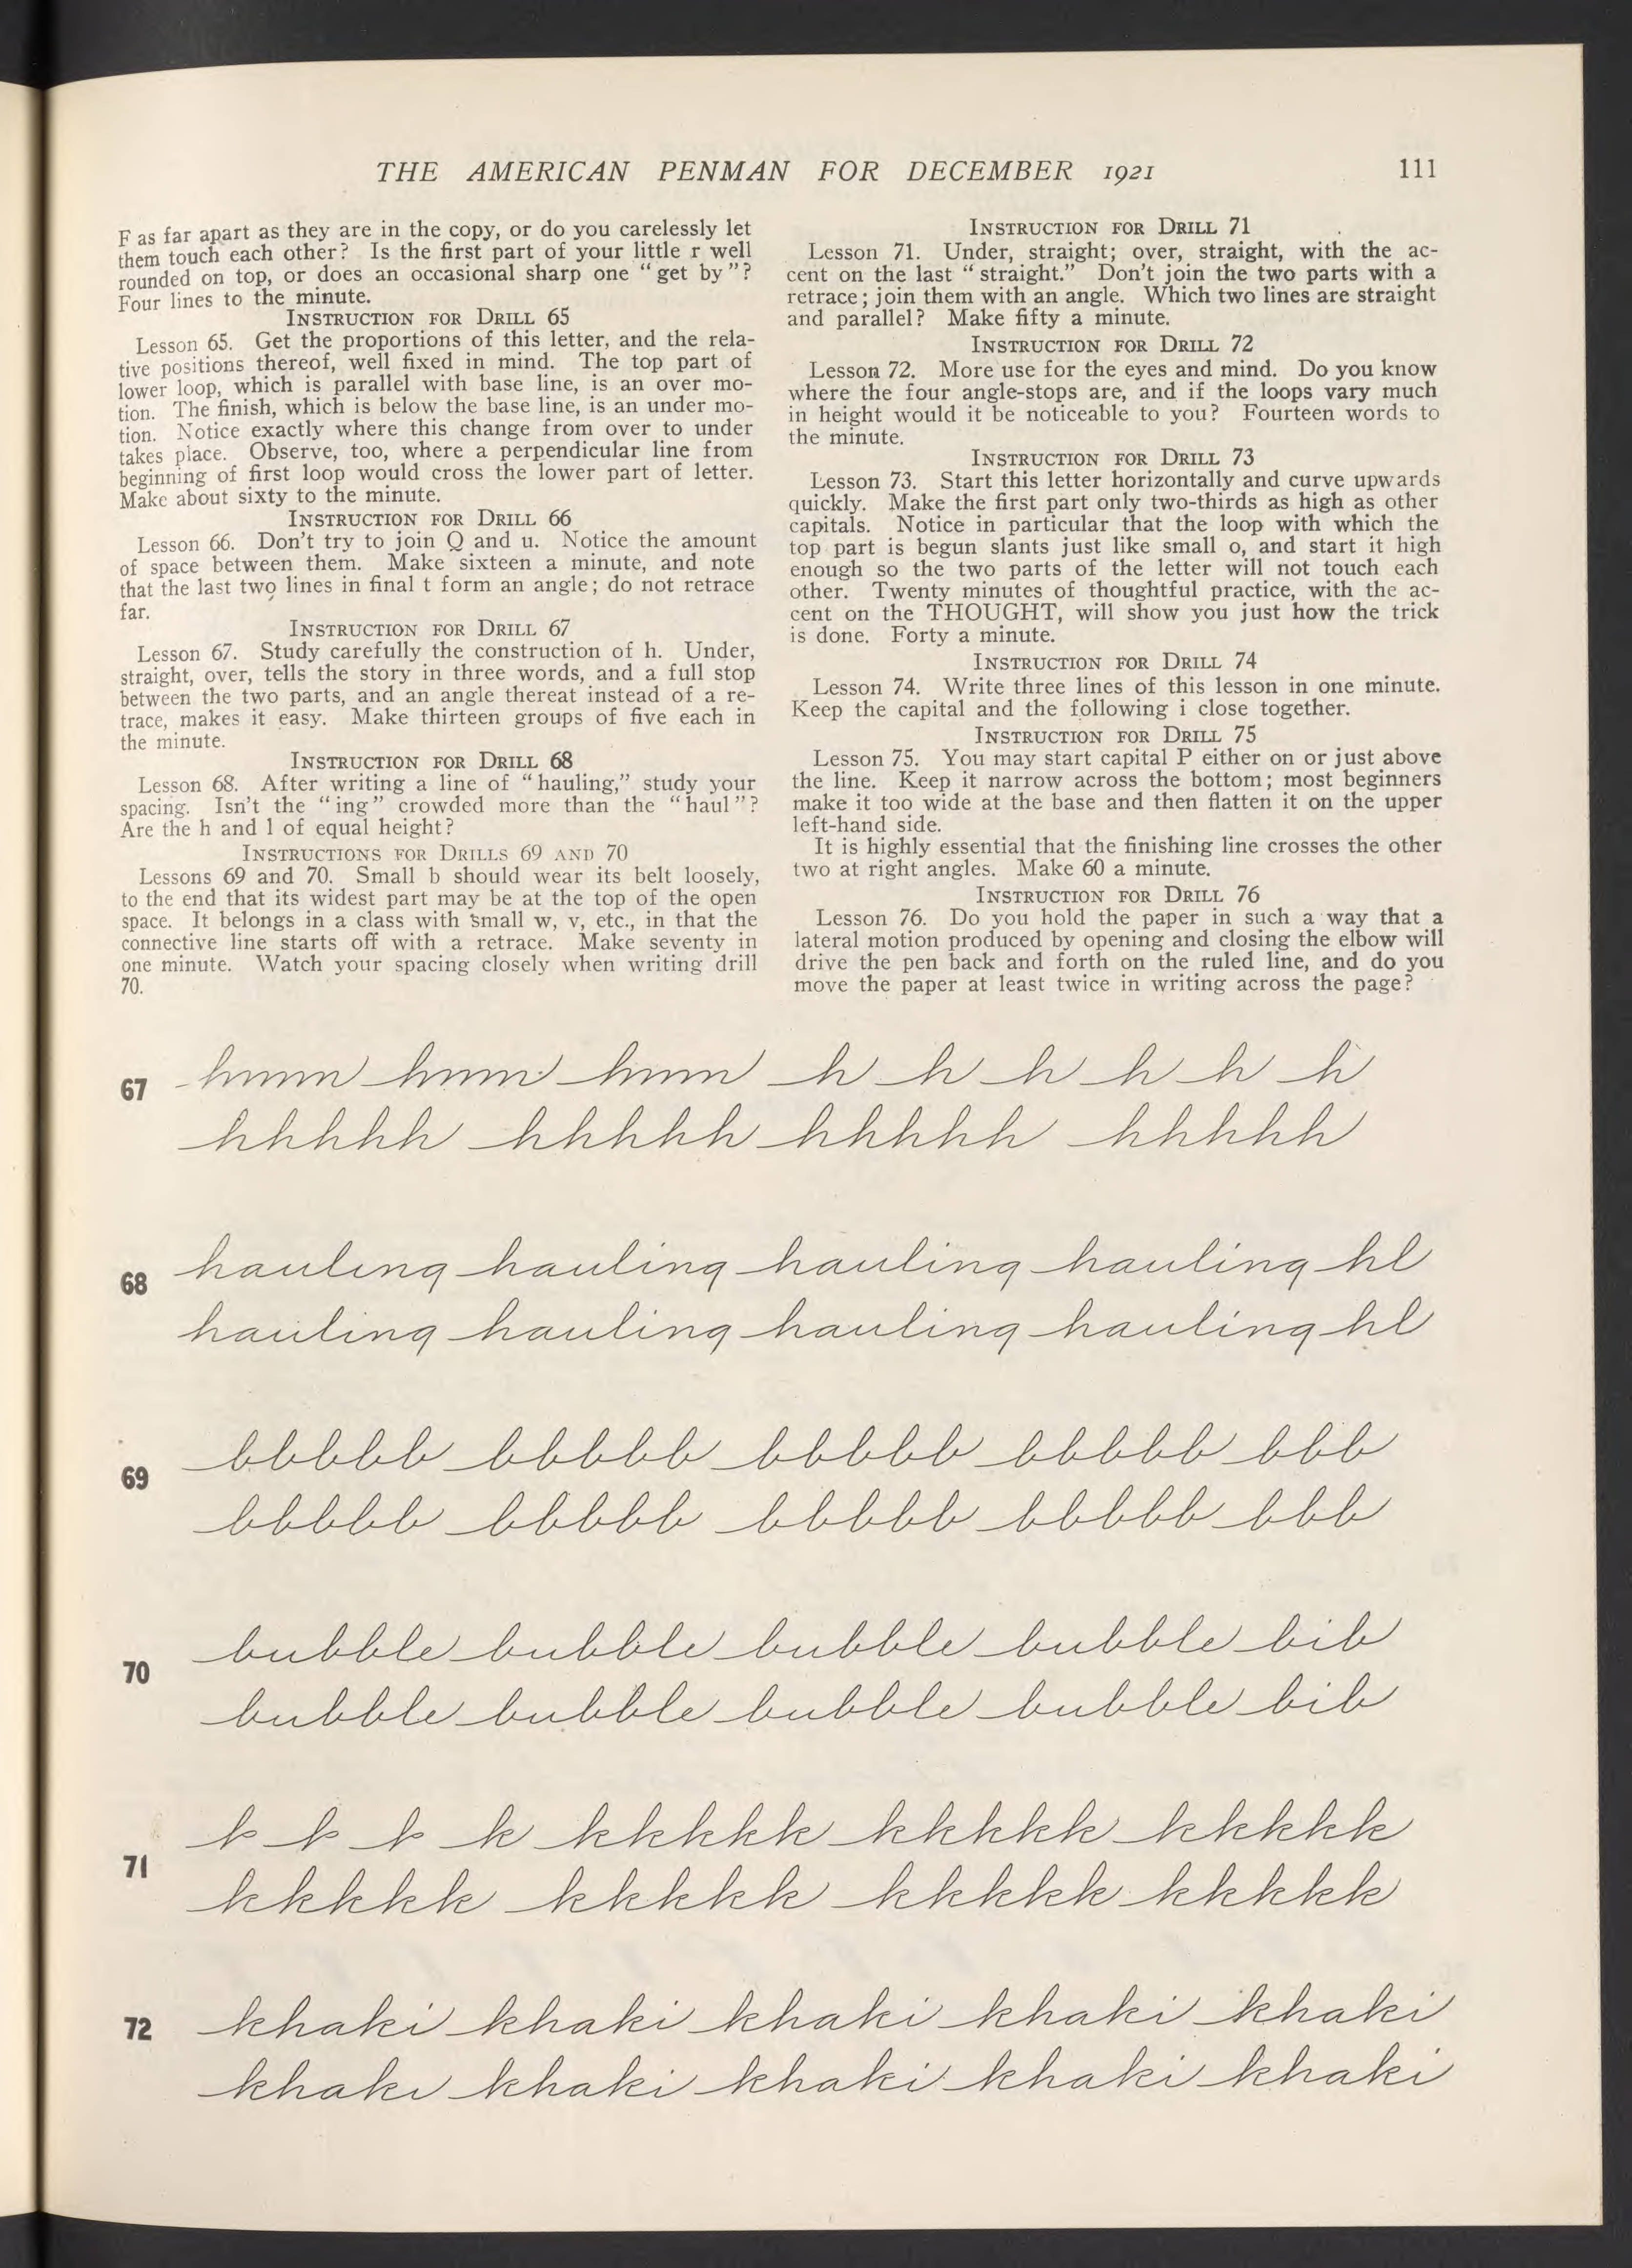 THE AMERICAN PENMAN FOR DECEMBER 1921 111
F as far apart as they are in the copy, or do you carelessly let
them touch each other? Is the first part of your little r well
rounded on top, or does an occasional sharp one “get by”?
Four lines to the minute.
INSTRUCTION FOR DRILL 65
Lesson 65. Get the proportions of this letter, and the rela-
tive positions thereof, well fixed in mind. The top part of
lower loop, which is parallel with base line, is an over mo-
tion. The finish, which is below the base line, is an under mo-
tion. Notice exactly where this change from over to under
takes place. Observe, too, where a perpendicular line from
beginning of first loop would cross the lower part of letter.
Make about sixty to the minute.
INSTRUCTION FOR DRILL 66
Lesson 66. Don’t try to join Q and u. Notice the amount
of space between them. Make sixteen a minute, and note
that the last two lines in final t form an angle; do not retrace
far.
INSTRUCTION FOR DRILL 67
Lesson 67. Study carefully the construction of h. Under,
straight, over, tells the story in three words, and a full stop
between the two parts, and an angle thereat instead of a re-
trace, makes it easy. Make thirteen groups of five each in
the minute.
INSTRUCTION FOR DRILL 68
Lesson 68. After writing a line of “hauling,” study your
spacing. Isn’t the “ing” crowded more than the “haul”?
Are the h and l of equal height?
INSTRUCTIONS FOR DRILLS 69 AND 70
Lessons 69 and 70. Small b should wear its belt loosely,
to the end that its widest part may be at the top of the open
space. It belongs in a class with small w, v, etc., in that the
connective line starts off with a retrace. Make seventy in
one minute. Watch your spacing closely when writing drill
70.
INSTRUCTION FOR DRILL 71
Lesson 71. Under, straight; over, straight, with the ac-
cent on the last “straight.” Don’t join the two parts with a
retrace; join them with an angle. Which two lines are straight
and parallel? Make fifty a minute.
INSTRUCTION FOR DRILL 72
Lesson 72. More use for the eyes and mind. Do you know
where the four angle-stops are, and if the loops vary much
in height would it be noticeable to you? Fourteen words to
the minute.
INSTRUCTION FOR DRILL 73
Lesson 73. Start this letter horizontally and curve upwards
quickly. Make the first part only two-thirds as high as other
capitals. Notice in particular that the loop with which the
top part is begun slants just like small o, and start it high
enough so the two parts of the letter will not touch each
other. Twenty minutes of thoughtful practice, with the ac-
cent on the THOUGHT, will show you just how the trick
is done. Forty a minute.
INSTRUCTION FOR DRILL 74
Lesson 74. Write three lines of this lesson in one minute.
Keep the capital and the following i close together.
INSTRUCTION FOR DRILL 75
Lesson 75. You may start capital P either on or just above
the line. Keep it narrow across the bottom; most beginners
make it too wide at the base and then flatten it on the upper
left-hand side.
It is highly essential that the finishing line crosses the other
two at right angles. Make 60 a minute.
INSTRUCTION FOR DRILL 76
Lesson 76. Do you hold the paper in such a way that a
lateral motion produced by opening and closing the elbow will
drive the pen back and forth on the ruled line, and do you
move the paper at least twice in writing across the page?
67 hmm hmm hmm h h h h h h
hhhhh hhhhh hhhhh hhhhh
68 hauling hauling hauling hauling hl
hauling hauling hauling hauling hl
69 bbbbb bbbbb bbbbb bbbbb bbb
bbbbb bbbbb bbbbb bbbbb bbb
70 bubble bubble bubble bubble bib
bubble bubble bubble bubble bib
71 k kkkkk kkkkk kkkkk
kkkkk kkkkk kkkkk kkkkk
72 khaki khaki khaki khaki khaki
khaki khaki khaki khaki khaki